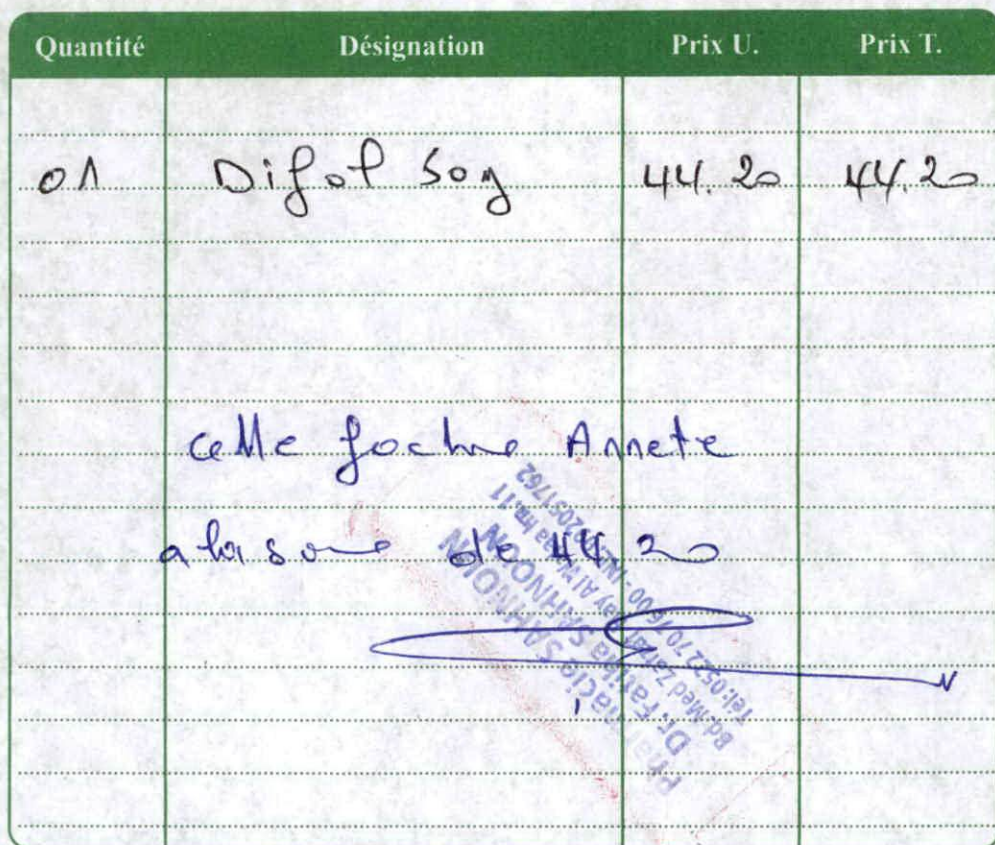 Quantité Désignation Prix U. Prix T.
01 Difal 50g 44.20 44.20
cette facture Arrete
a la somme de 44.20
Pharmacie SAHNOUN
Dr. Fatiha SAHNOUN
Bd. Med Hay Al
Tel: 0522 70 76 00